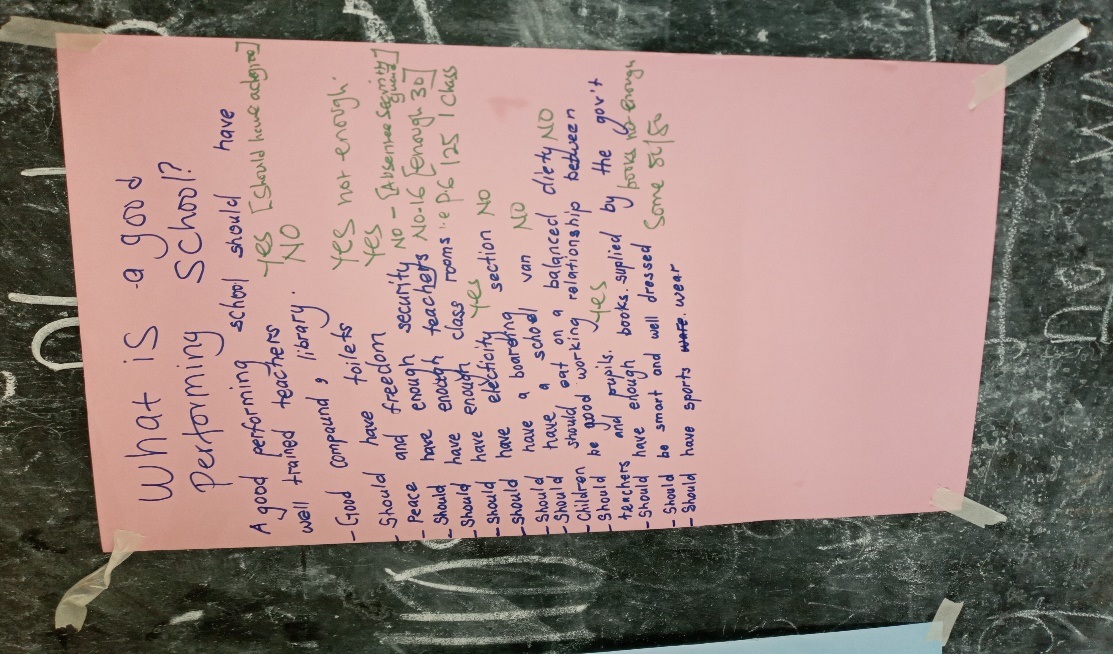 What is a good
performing school?
A good performing school should have
well trained teachers Yes [Should have a degree]
- Good compound, library. NO
- Should have toilets Yes not enough
- Peace and freedom Yes
- Should have enough security NO - [Absentee Security guard]
- Should have enough teachers NO-16 [enough 30]
- Should have enough class rooms i.e p.6 125 1 class
- Should have electicity Yes
- Should have a boarding section NO
- Should have a school van NO
- Children should eat on a balanced diety NO
- Should be good working relationship between
teachers and pupils. Yes
- Should have enough books suplied by the gov't
books not enough
- Should be smart and well dressed Some 50/50
- Should have sports wear